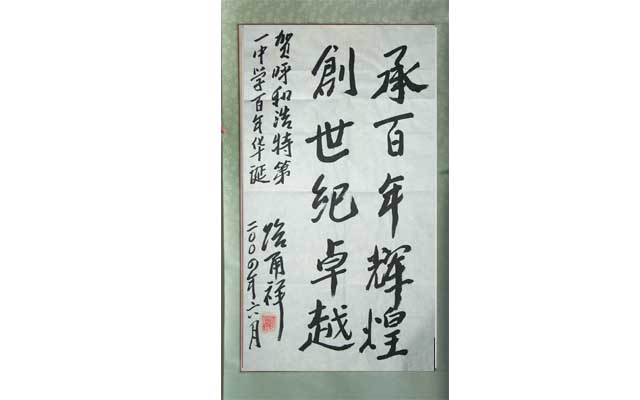 承百年辉煌
創世纪卓越
贺呼和浩特第
一中学百年华诞
路甬祥
二〇〇四年六月